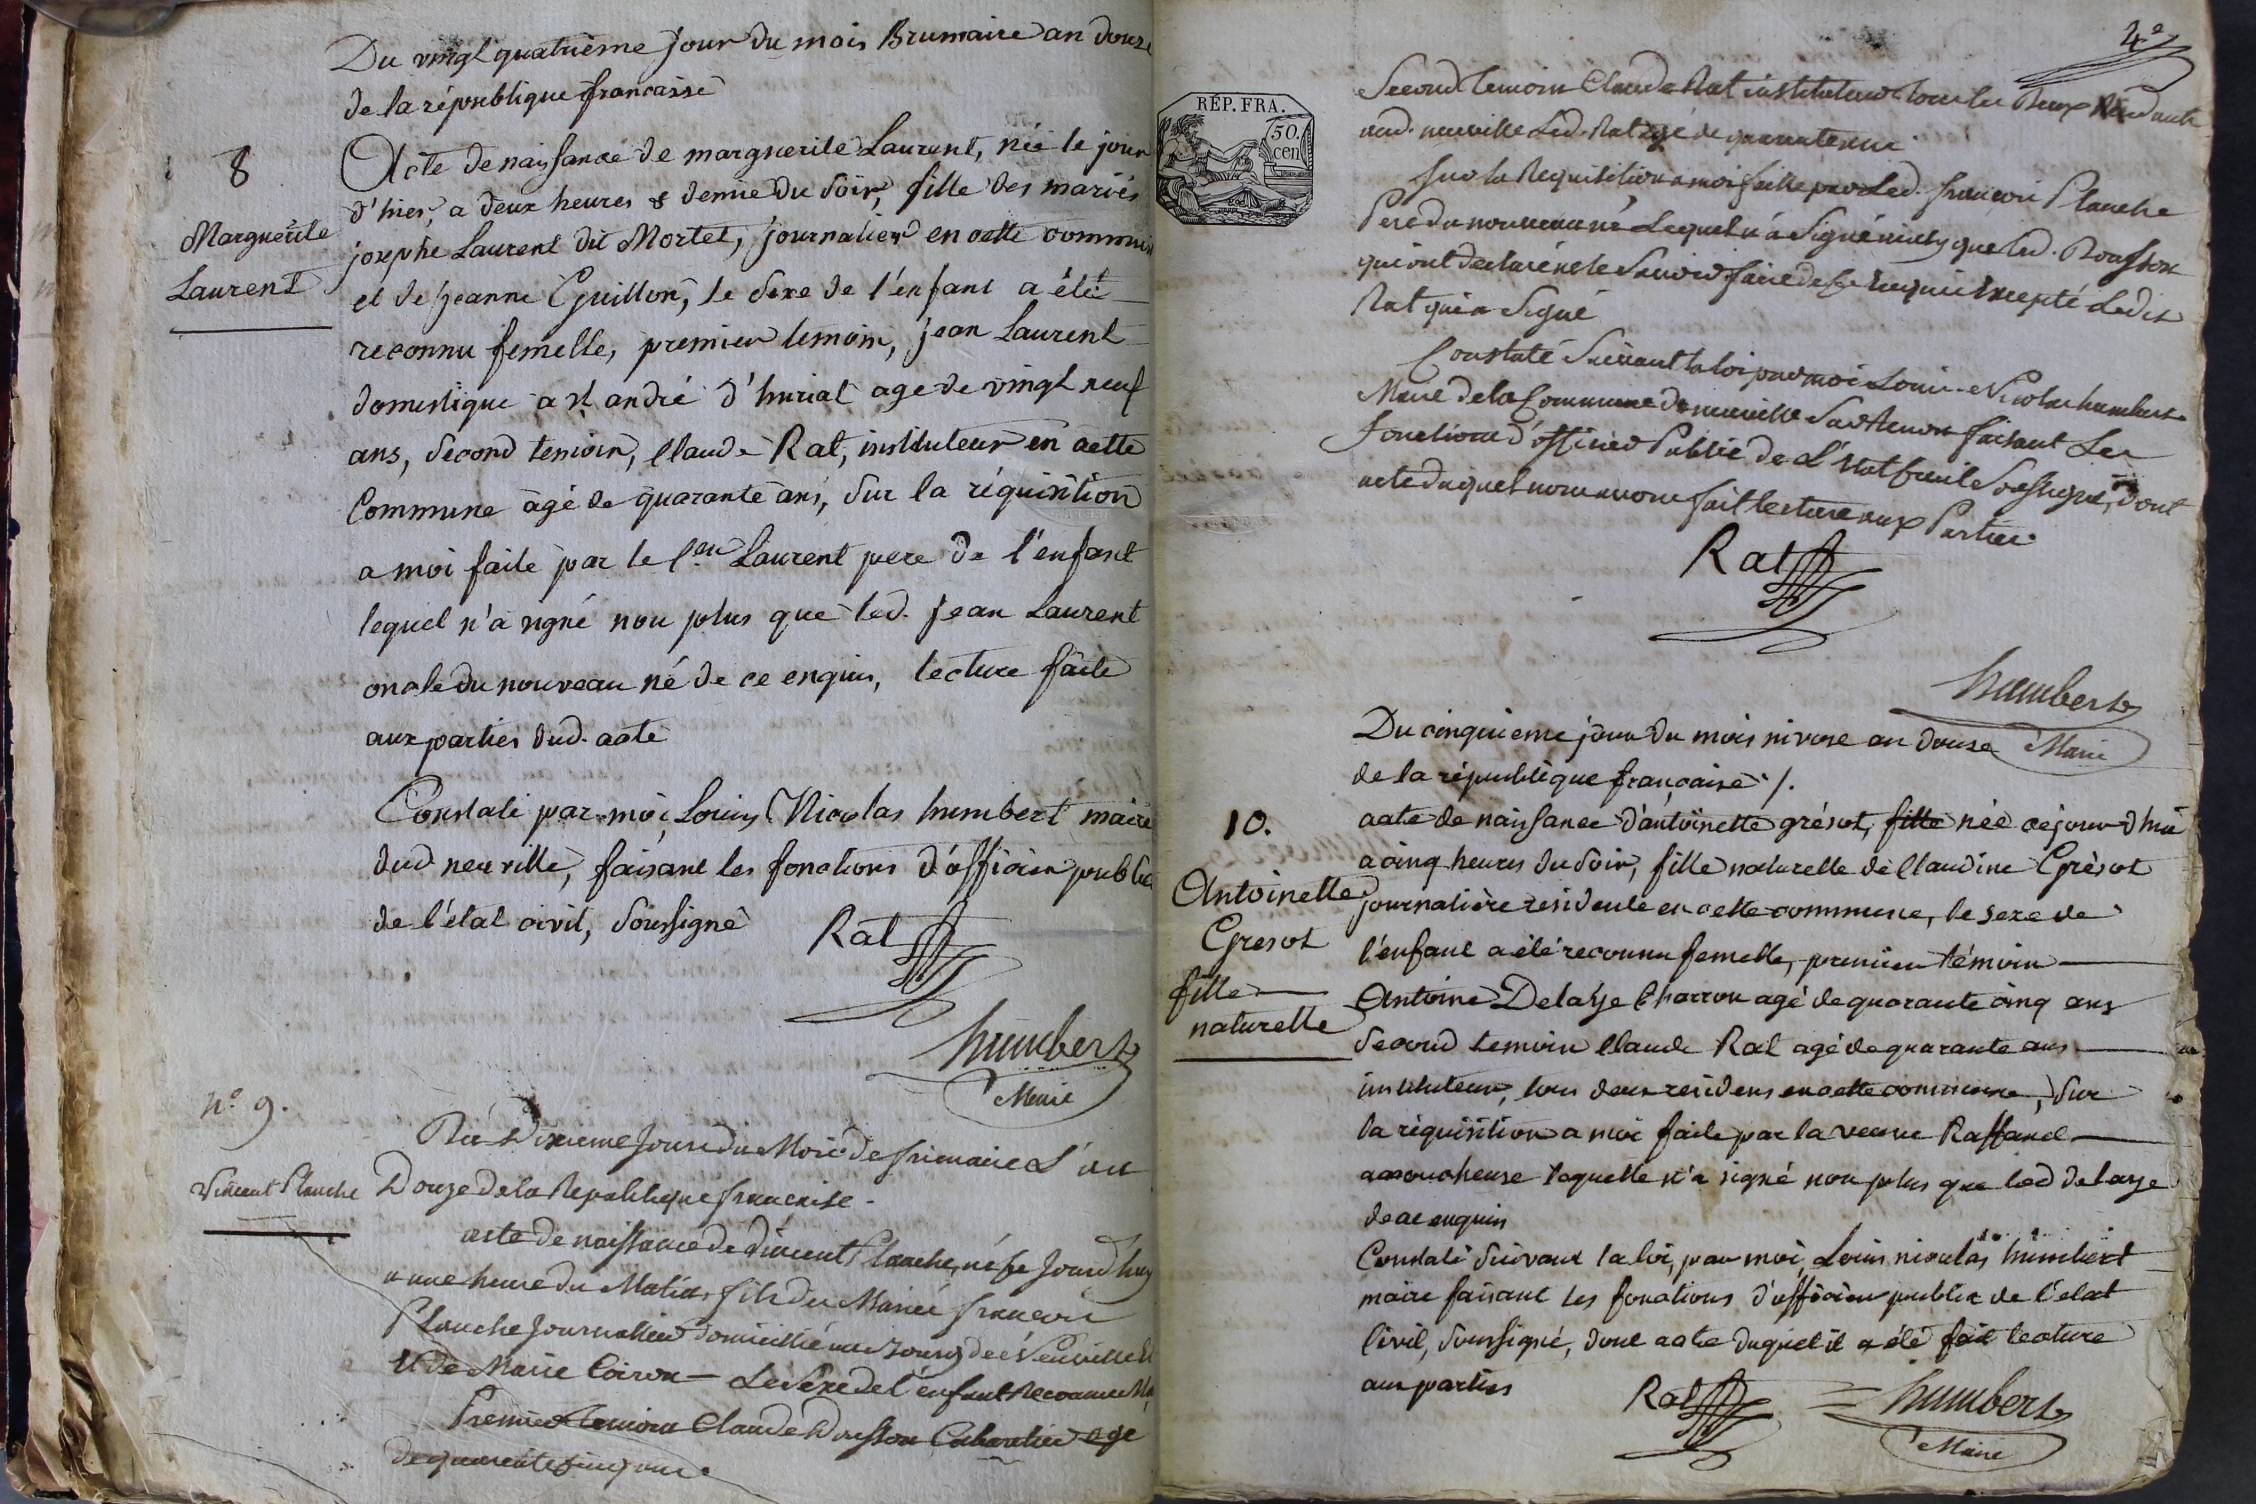 Du vingt quatrième jour du mois Brumaire an douze
de la république francaisse
8
Acte de naissance de marguerite Laurent, née le jour
d'hier, a deux heures & demie du soir, fille des mariés
Marguerite
Laurent
josephe Laurent dit Mortel, journalier en cette commune
et de jeanne Guillon, le sexe de l'enfant a été
reconnu femelle, premier temoin, jean Laurent
domestique a st andré d'huriat age de vingt neuf
ans, second temoin, Claude Rat, instituteur en cette
Commune agé de quarante ans, sur la réquisition
a moi faite par le C.en Laurent pere de l'enfant
lequel n'a signé non plus que led. jean Laurent
oncle du nouveau né de ce enquis, lecture faite
aux parties dud. acte
Constaté par moi Louis Nicolas humbert maire
dud neuville, faisant les fonctions d'officier public
de l'état civil, soussigné
Rat
humbert
Maire
n.o 9.
Vincent Planche
Du Dixieme Jour du Mois de frimaire L'an
Douze de la Republique francaise.
acte de naissance de Vincent Planche, né ce Jourd'huy
a une heure du Matin, fils des Mariés francois
Planche Journallier domicillié au Bourg de Neuville
et de Marie Coiron Le Sexe de l'enfant Reconnu
Premier Temoin Claude Bousson Cabaretier age
de quarante cinq ans.
4e
RÉP. FRA.
50.
cen
Second Temoin Claude Rat instituteur tous les deux Residants
aud. neuville Led. Rat agé de quarante ans
Sur la Requisition a moi faitte par Led. francois Planche
Pere du nouveau né Lequel n'a Signé ainsy que led. Bousson
qui ont declaré ne le Savoir faire de ce Enquis Excepté Ledit
Rat qui a Signé
Constaté Suivant la loi par moi Louis Nicolas humbert
Maire de la Commune de neuville Sur Renon faisant Les
fonctions d'officier Public de L'Etat Civil Soussigné, dont
acte duquel nous avons fait lecture aux Parties.
Rat
humbert
Maire
Du cinquieme jour du mois nivose an douse
de la république française ./.
10.
Antoinette
Gresot
fille
naturelle
acte de naissance d'antoinette grésot, fille née cejourd'hui
a cinq heures du soir, fille naturelle de Claudine Grèsot
journalière residente en cette commune, le sexe de
l'enfant a été reconnu femelle, premier témoin
Antoine Delaÿe Charron agé de quarante cinq ans
second temoin Claude Rat agé de quarante ans
instituteur, tous deux residens en cette commune, sur
la réquisition a moi faite par la veuve Raffanel
accoucheuse laquelle n'a signé non plus que led delaye
de ce enquis
Constaté suivant la loi, par moi, Louis nicolas humbert
maire faisant les fonctions d'officier public de l'etat
Civil, soussigné, dont acte duquel il a été fait lecture
aux parties
Rat
humbert
Maire